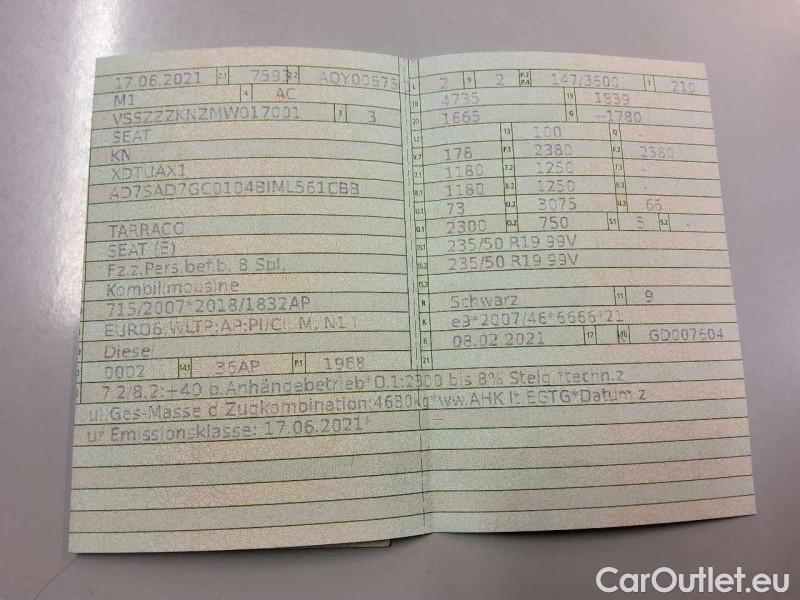 17.06.2021 2.1 7593 2.2 ADY00675
M1 4 AC
VSSZZZKNZMW017001 3 3
SEAT
KN
XDTUAX1
AD7SAD7GC0104BIML561CBB
TARRACO
SEAT (E)
Fz.z.Pers.bef.b. 8 Spl.
Kombilimousine
715/2007*2018/1832AP
EURO6;WLTP;AP;PI/CI; M, N1 I
Diesel
0002 14.1 36AP P.1 1968
L 2 9 2 P.2 P.4 147/3600 T 210
18 4735 19 1839
20 1665 G -1780
12 13 100 Q -
V.7 178 F.1 2380 F.2 2380
7.1 1180 7.2 1250 7.3 -
8.1 1180 8.2 1250 8.3 -
U.1 73 U.2 3075 U.3 66
O.1 2300 O.2 750 S.1 5 S.2 -
15.1 235/50 R19 99V
15.2 235/50 R19 99V
15.3
R Schwarz 11 9
K e3*2007/46*6666*21
6 08.02.2021 17 16 GD007604
21
7.2/8.2:+40 b.Anhängebetrieb*O.1:2300 bis 8% Steig.*techn.z
ul.Ges-Masse d Zugkombination:4680kg*ww.AHK lt.EGTG*Datum z
ur Emissionsklasse: 17.06.2021*
CarOutlet.eu